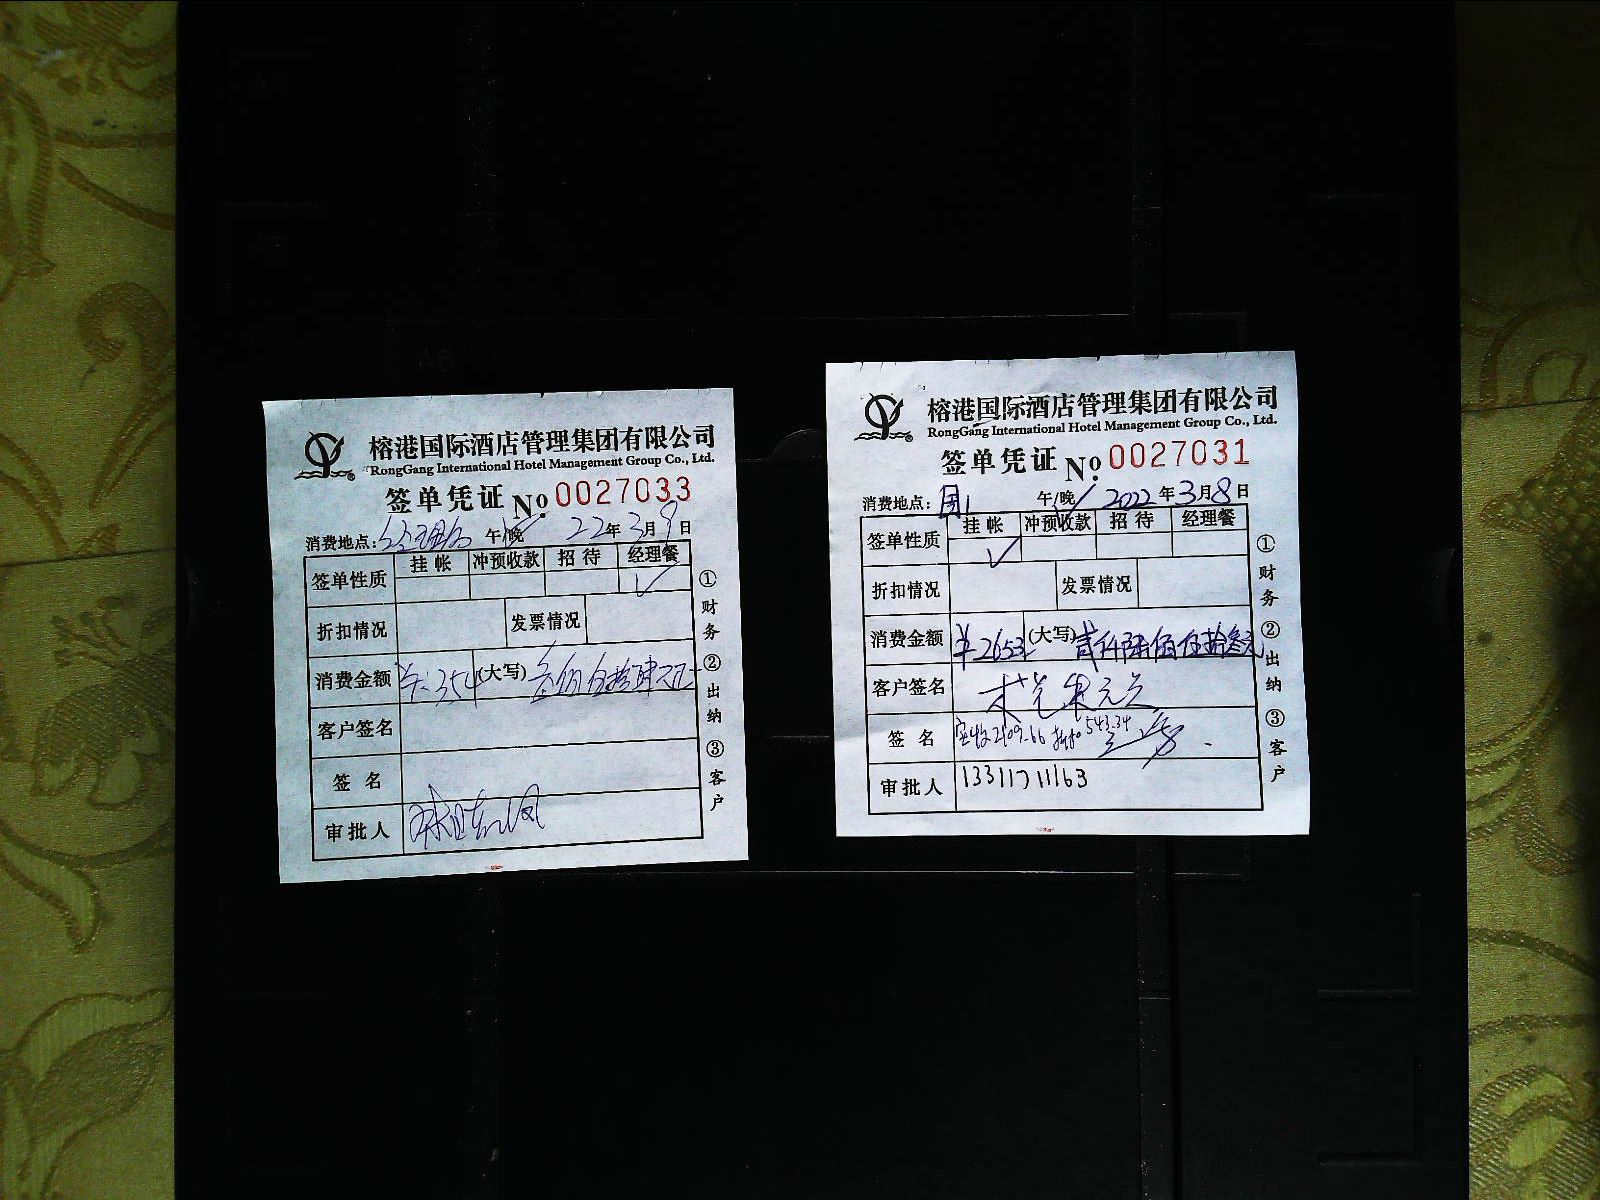 榕港国际酒店管理集团有限公司
RongGang International Hotel Management Group Co., Ltd.
签单凭证 No. 0027033
消费地点: 午/晚 22年3月9日
签单性质 挂帐 冲预收款 招待 经理餐
✓
折扣情况 发票情况
消费金额 ¥:354 (大写) 叁佰伍拾肆元
客户签名
签名
审批人
①财务 ②出纳 ③客户
榕港国际酒店管理集团有限公司
RongGang International Hotel Management Group Co., Ltd.
签单凭证 No. 0027031
消费地点: 国1 午/晚 2022年3月8日
签单性质 挂帐 冲预收款 招待 经理餐
✓
折扣情况 发票情况
消费金额 ¥2653 (大写) 贰仟陆佰伍拾叁元
客户签名
签名 实收2109.66 折扣543.34
审批人 13311711163
①财务 ②出纳 ③客户